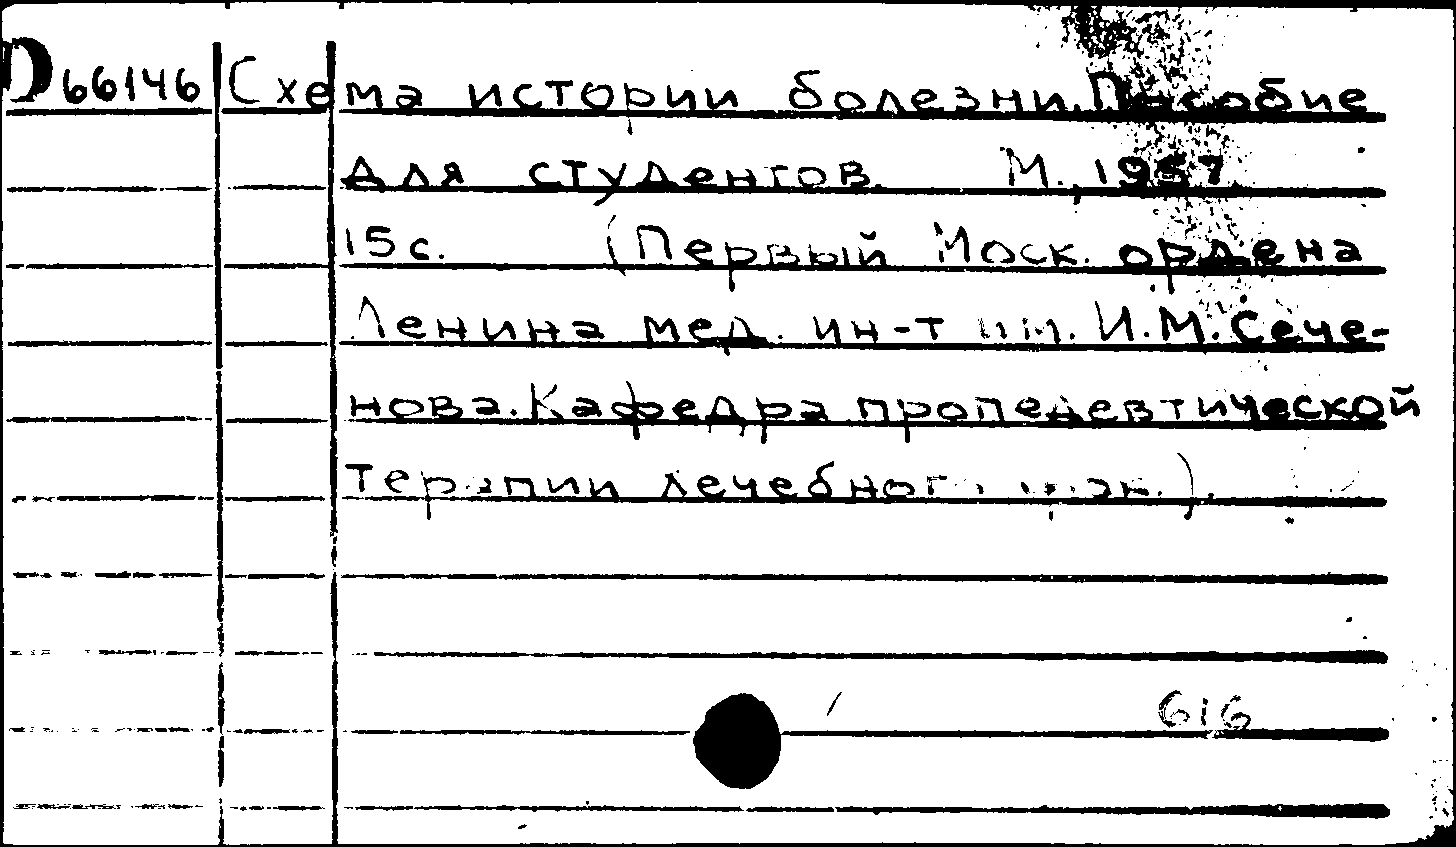 D 66146 Схема истории болезни. Пособие
для студентов. М., 1957
15 с. (Первый Моск. ордена
Ленина мед. ин-т им. И.М. Сече-
нова. Кафедра пропедевтической
терапии лечебного фак.).
616